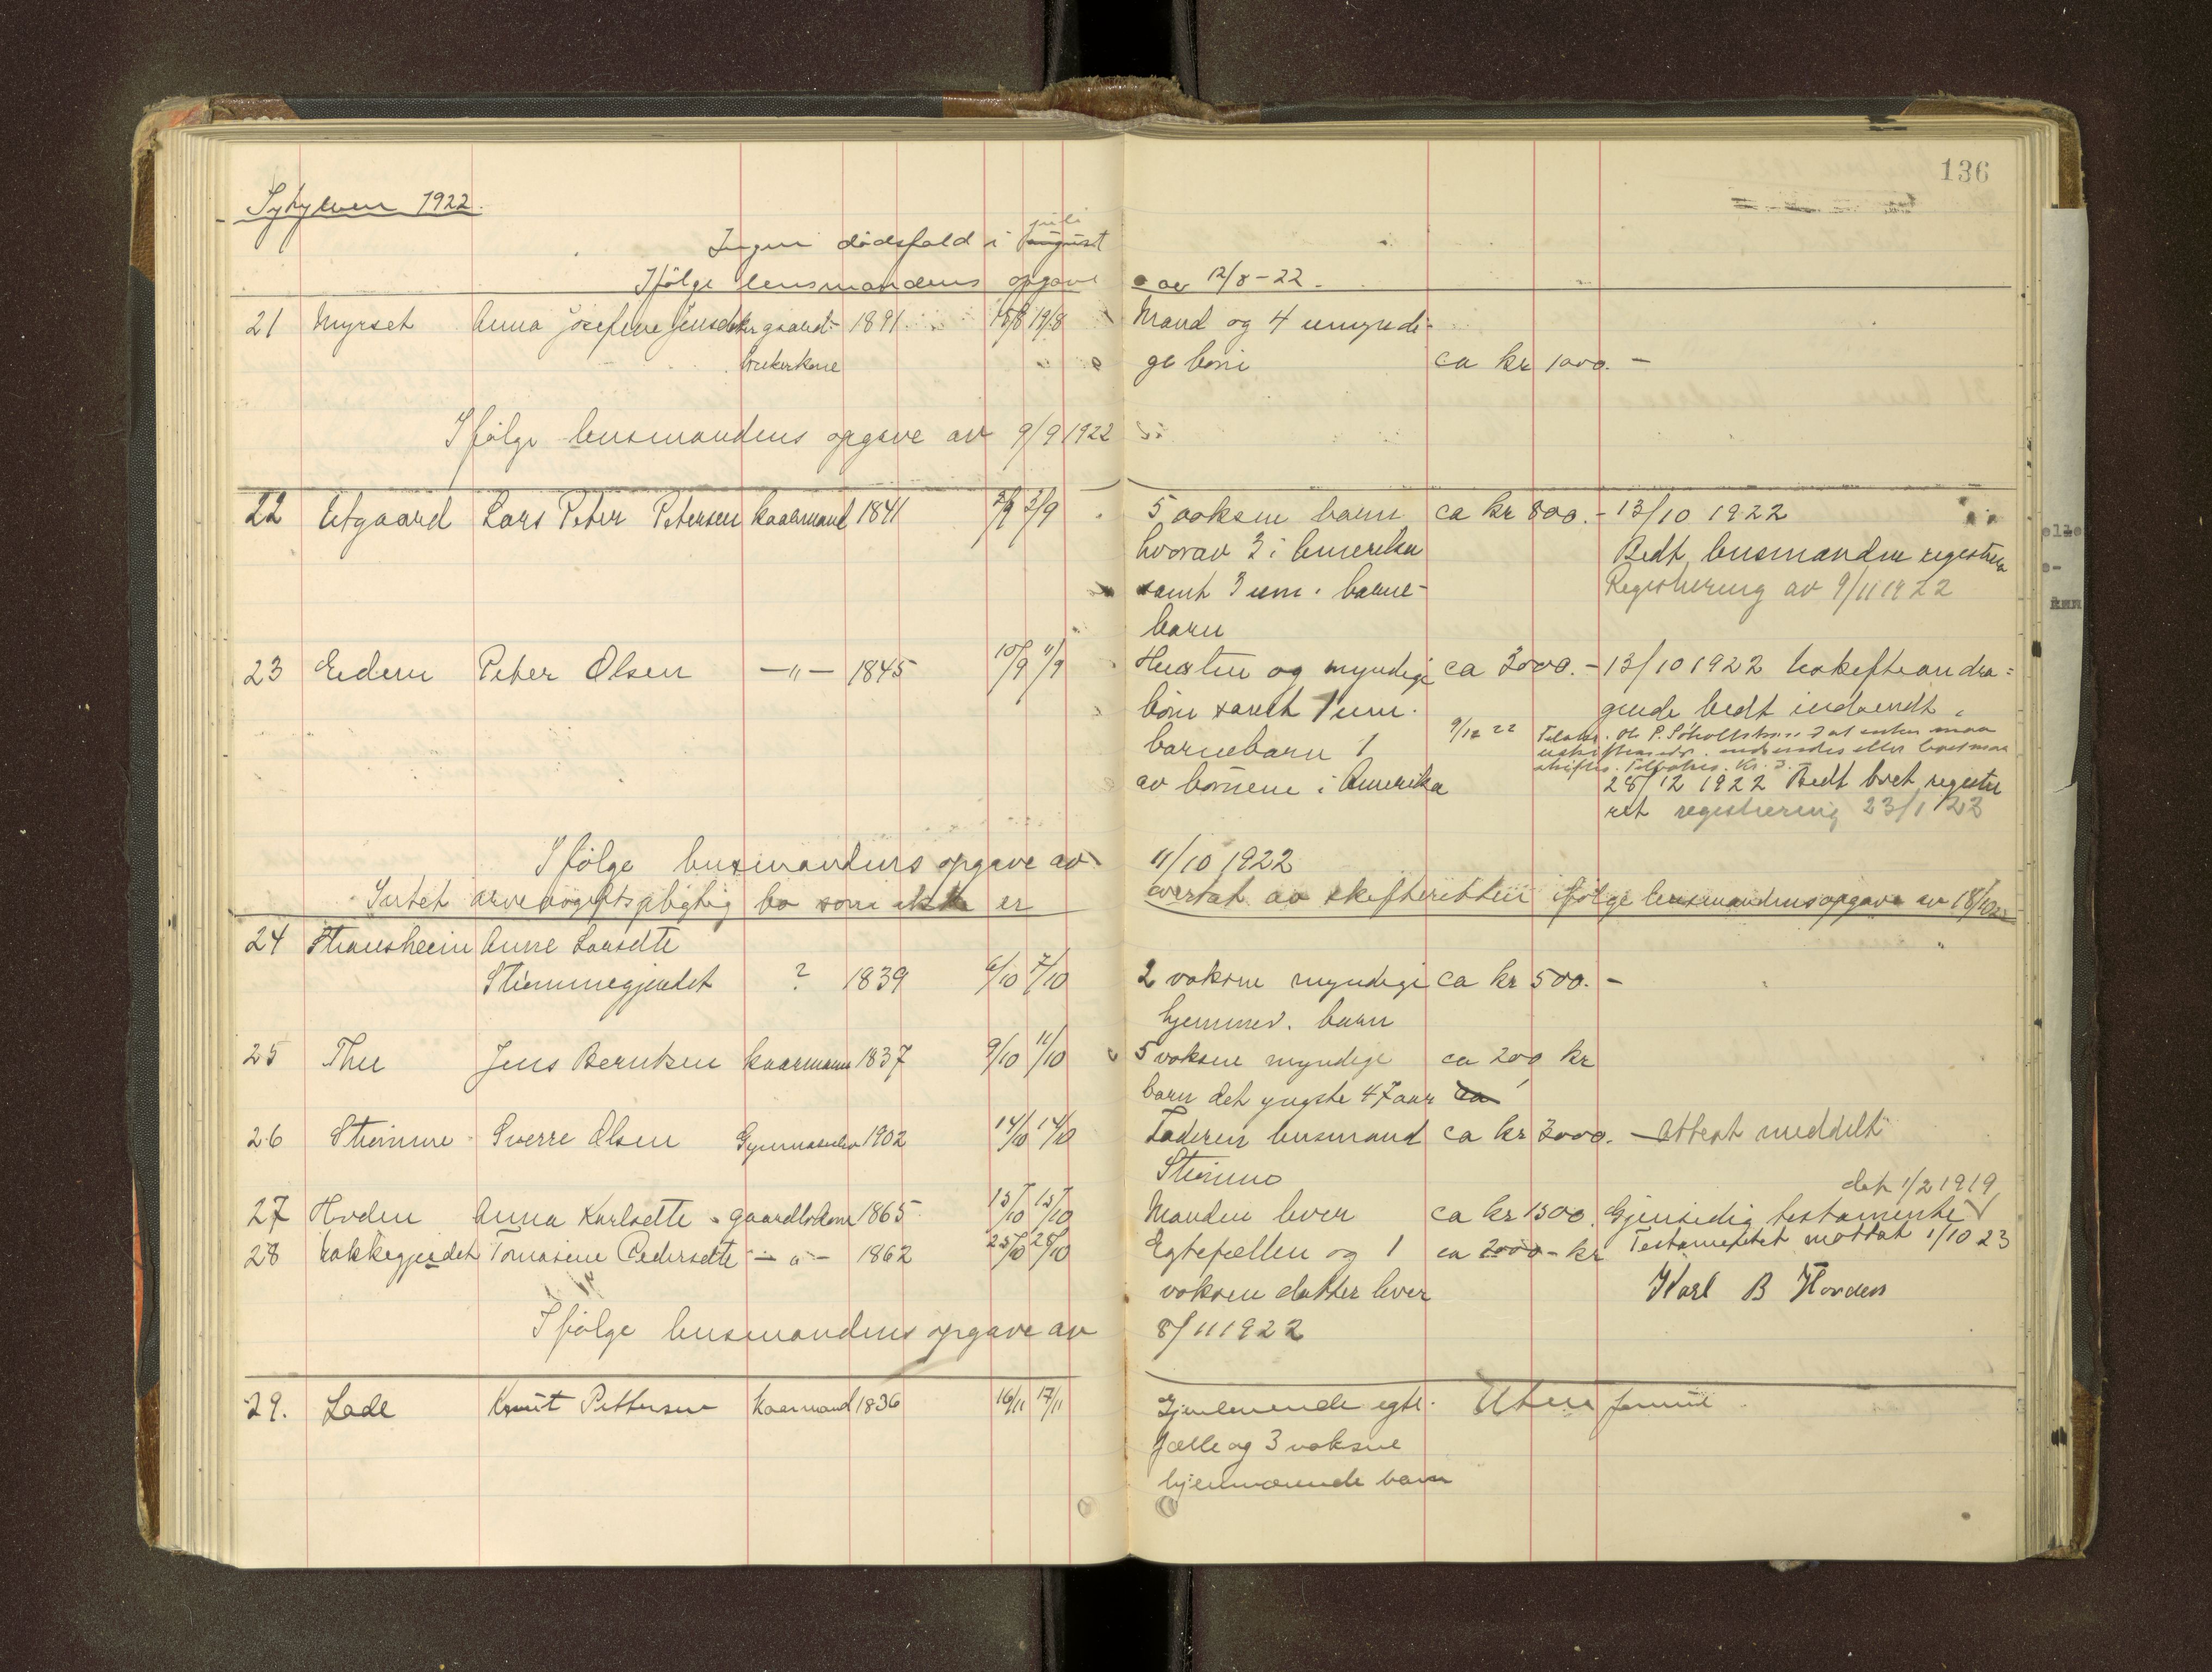 136
Syhylven 1922.
Ingen dödsfald i august juli
Ifölge lensmandens opgave av 12/8-22.
21 Myrset Anna Josefine Jensdtr gaard- 1891 18/8 19/8 Mand og 4 umyndi-
brukerkone ge börn ca kr 1000.-
Ifölge lensmandens opgave av 9/9 1922
22 Utgaard Lars Peter Petersen kaarmand 1841 2/9 3/9 5 voksne barn ca kr 800.- 13/10 1922
hvorav 3 i Amerika Bedt lensmanden registrere
samt 3 um. barne- Registrering av 9/11 1922
barn
23 Eidem Peter Olsen -"- 1845 10/9 11/9 Hustru og myndige ca 3000.- 13/10 1922 uskifteandra=
börn samt 1 um. gende bedt indsendt.
barnebarn 1 9/12 22
av börnene i Amerika 28/12 1922 Bedt boet registre
ret registrering 23/1 23
Ifölge lensmandens opgave av 11/10 1922
Intet arveavgiftspligtig bo som ikke er overtat av skifteretten ifölge lensmandens opgave av 18/10 22
24 Straumsheim Anne Larsdtr
Stimmegjerdet ? 1839 6/10 7/10 2 voksne myndige ca kr 500.-
hjemmev. barn
25 Thu Jens Berntsen kaarmann 1837 9/10 11/10 5 voksne myndige ca 200 kr
barn det yngste 47 aar ca
26 Strömme Sverre Olsen Gymnasielev 1902 14/10 14/10 Faderen lensmand ca kr 3000.- Attest meddelt
Strömme
det 1/2 1919
27 Hovden Anna Karlsdtr gaardbrkone 1865 15/10 15/10 Manden lever ca kr 1500. Gjensidig testamente
28 Bakkegjerdet Tomasine Pedersdtr -"- 1862 25/10 28/10 Egtefællen og 1 ca 2000- kr Testamentet mottat 1/10 23
voksen datter lever Karl B Hovden
Ifölge lensmandens opgave av 8/11 1922
29. Lade Knut Pettersen Kaarmand 1836 16/11 17/11 Gjenlevende egte- Uten formue
fælle og 3 voksne
hjemværende barn